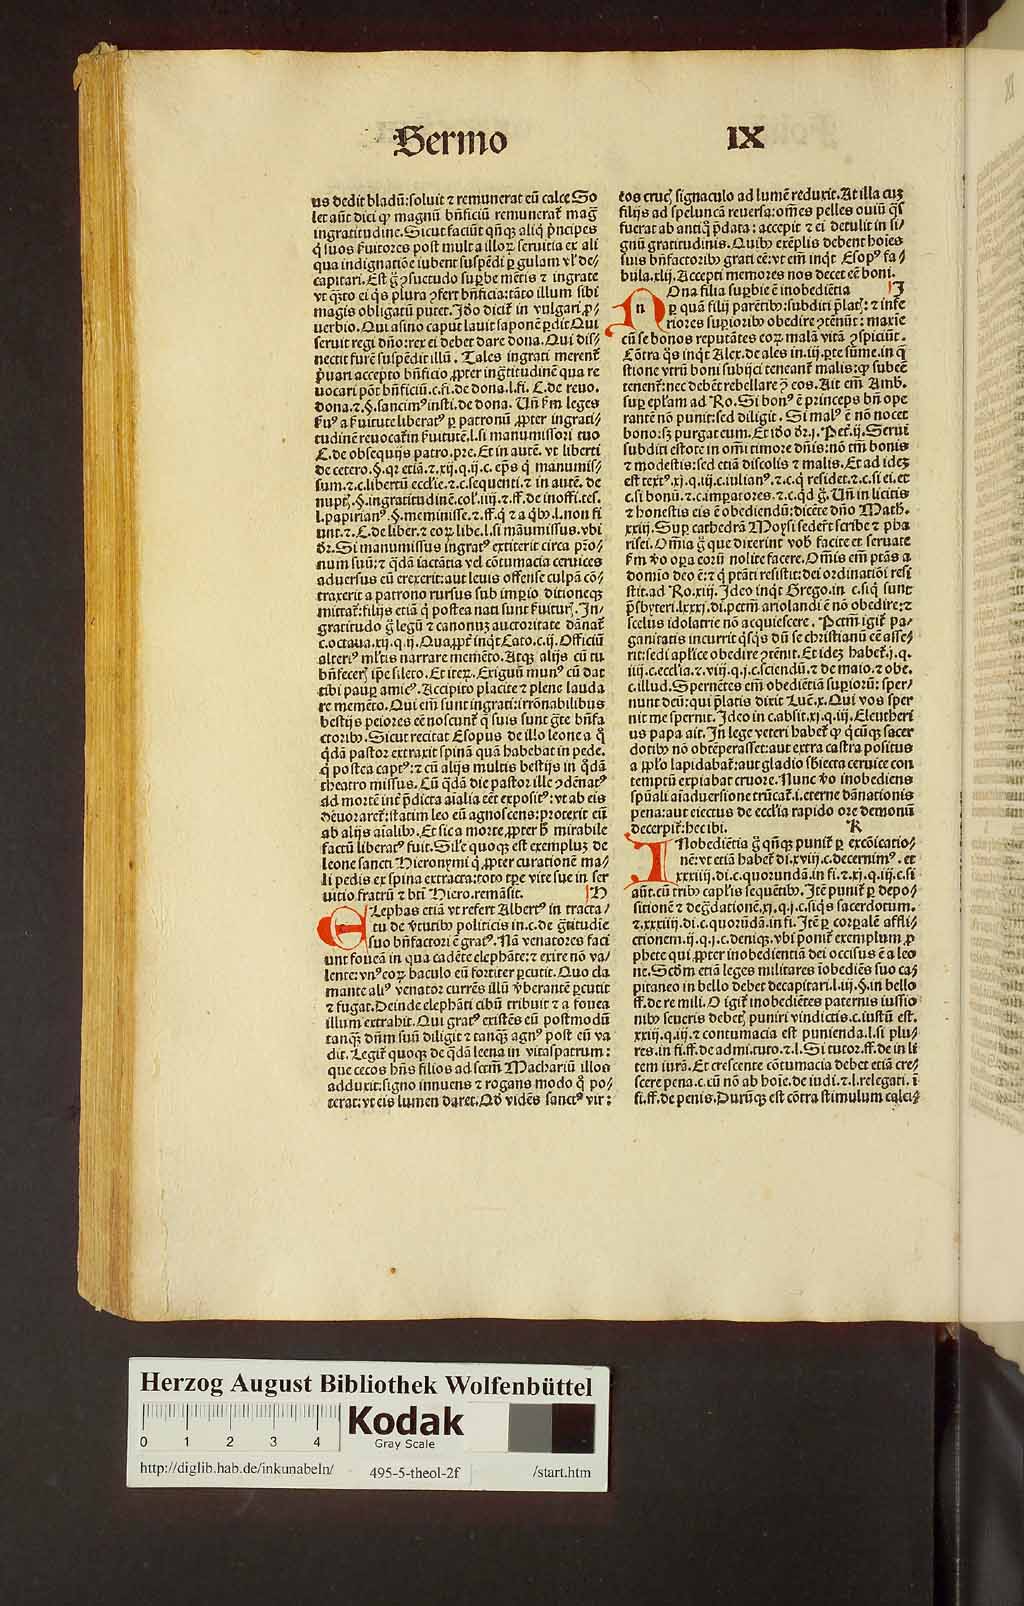 Sermo IX
us dedit bladū:soluit ⁊ remunerat eū calce So
let aūt dici ꝙ magnū bn̄ficiū remunerat᷑ maḡ
ingratitudine.Sicut faciūt qn̄qꝫ aliq̄ prīcipes
q̇ suos ẜuitores post multa illoꝝ seruitia ex ali
qua indignatiōe iubent suspēdi ꝑ gulam vl' de⸗
capitari.Est g̊ ꝯsuetudo suꝑbe mētis ⁊ ingrate
vt q̄sto ei q̇s plura ꝯfert bn̄ficia:tāto illum sibi
magis obligatū putet.Iō dicit᷑ in vulgari ꝓ⸗
uerbio.Qui asino caput lauit saponē ꝑdit Qui
seruit regi dn̄o:rex ei debet dare dona.Qui dis⸗
nectit furē suspēdit illū. Tales ingrati merent᷑
pͥuari accepto bn̄ficio ꝓpter ing̈titudinē qua re
uocari pōt bn̄ficiū.c.fi.de dona.l.fi. C.de reuo.
dona.⁊.§.sancimꝰ insti.de dona. Vn̄ ẜm leges
ẜuꝰ a ẜuitute liberatꝰ ꝑ patronū ꝓpter ingrati⸗
tudinē reuocat᷑ in ẜuitutē.l.si manumissori tuo
C.de obsequijs patro.pre.Et in autē. vt liberti
de cetero.§.qꝛ etiā.⁊.xij.q.ij.c. ep̄s q̇ manumis⸗
sum.⁊.c.libertū eccl'ie.⁊.c.sequenti.⁊ in autē. de
nupt᷑.§.ingratitudinē.col'.iiij.⁊.ff.de inoffi.tes.
l.papirianꝰ.§.meminisse.⁊.ff.q̇ ⁊ a q̇bꝫ.l.non fi
unt.⁊.C.de liber.⁊ eoꝝ libe.l.si māumissus.vbi
dr̄.Si manumissus ingratꝰ extiterit circa pr̄o⸗
num suū:⁊ q̄dā iactātia vel cōtumacia ceruices
aduersus eū erexerit:aut leuis offense culpā cō⸗
traxerit a patrono rursus sub imꝑio ditioneqꝫ
mittat᷑:filijs etiā q̇ postea nati sunt ẜuitur᷑. In⸗
gratitudo g̊ legū ⁊ canonuꝫ auctoritate dānat᷑
c.octaua.xij.q.ij.Quaꝓpt᷑ inq̇t Cato.c.ij. Officiū
alteriꝰ ml'tis narrare memēto.Atqꝫ alijs cū tu
bn̄fecer᷑ ip̄e sileto. Et iteꝝ. Exiguū munꝰ cū dat
tibi pauꝑ amicꝰ.Accipito placite ⁊ plene lauda
re memēto.Qui em̄ sunt ingrati:irrōnabilibus
bestijs peiores eē noscunt᷑ q̇ suis sunt g̈te bn̄fa
ctoribꝫ.Sicut recitat Esopus de illo leone a q̊
q̇dā pastor extraxit spinā quā habebat in pede.
q̇ postea captꝰ:⁊ cū alijs multis bestijs in q̊dā
theatro missus. Cū q̄dā die pastor ille ꝯdēnatꝰ
ad mortē int᷑ p̄dicta aīalia eēt expositꝰ:vt ab eis
deuoraret᷑:statim leo eū agnoscens:protexit eū
ab alijs aīalibꝫ.Et sic a morte ꝓpter h̄ mirabile
factū liberatꝰ fuit. Sil'e quoqꝫ est exempluꝫ de
leone sancti Hieronymi q̇ ꝓpter curationē ma⸗
li pedis ex spina extracta:toto tp̄e vite sue in ser
uitio fratrū ⁊ bt̄i Hiero.remāsit. H
Elephas etiā vt refert Albertꝰ in tracta⸗
tu de v̓tutibꝫ politicis in.c.de g̈titudie
suo bn̄factori ē gratꝰ. Nā venatores faci
unt foueā in qua cadēte elephāte:⁊ exire nō va⸗
lente:vnꝰ eoꝝ baculo eū fortiter ꝑcutit. Quo cla
mante aliꝰ venator currēs illū v̓berantē ꝑcutit
⁊ fugat.Deinde elephāti cibū tribuit ⁊ a fouea
illum extrahit.Qui gratꝰ existēs eū postmodū
tanqꝫ dn̄m suū diligit ⁊ tanqꝫ agnꝰ post eū va
dit. Legit᷑ quoqꝫ de q̄dā leena in vitaspatrum:
que cecos hn̄s filios ad sctm̄ Machariū illos
adduxit:signo innuens ⁊ rogans modo q̊ po⸗
terat:vt eis lumen daret.Qd̓ vidēs sanctꝰ vir:
eos cruc᷑ signaculo ad lumē reduxit.At illa cuꝫ
filijs ad speluncā reuersa:om̄es pelles ouiū q̄s
fuerat ab antiq̊ p̄data: accepit ⁊ ei detulit in si⸗
gnū gratitudinis.Quibꝫ exēplis debent hoīes
suis bn̄factoribꝫ grati eē:vt em̄ inq̇t Esopꝰ fa⸗
bula.xlij.Accepti memores nos decet eē boni.
Nona filia suꝑbie ē inobediētia I
ꝑ quā filij parētibꝫ:subditi p̄lat᷑:⁊ infe⸗
riores suꝑioribꝫ obedire ꝯtēnūt: maxīe
cū se bonos reputātes eoꝝ malā vitā ꝯspiciūt.
Cōtra q̄s inq̇t Alex.de ales in.iij.ꝑte sūme.in q̄
stione vtrū boni subijci teneant᷑ malis:ꝙ subeē
tenent᷑:nec debēt rebellare ꝯ̄ eos. Ait em̄ Amb.
suꝑ ep̄lam ad Ro. Si bonꝰ ē princeps bn̄ ope
rantē nō punit:sed diligit. Si malꝰ ē nō nocet
bono:sꝫ purgat eum. Et iō dr̄.j. Pet᷑.ij. Serui
subditi estote in om̄i timore dn̄is:nō tm̄ bonis
⁊ modestis:sed etiā discolis ⁊ malis. Et ad ideꝫ
est textꝰ.xj.q.iij.c.iulianꝰ.⁊.c.q̇ residet.⁊.c.si ei.et
c.si bonū.⁊.c.imꝑatores.⁊.c.qd̓ g̊. Vn̄ in licitis
⁊ honestis eis ē obediendū:dicēte dn̄o Math.
xxiij. Suꝑ cathedrā Moysi sedert̄ scribe ⁊ pha
risei. Om̄ia g̊ que dixerint vob̓ facite et seruate
ẜm v̓o oꝑa eorū nolite facere. Om̄is em̄ ptās a
domio deo ē:⁊ q̇ ptāti resistit:dei ordinatiōi resi
stit.ad Ro.xiij. Ideo inq̇t Grego.in c.siq̇ sunt
p̄sbyteri.lxxxj.di.pctm̄ ariolandi ē nō obedire:⁊
scelus idolatrie nō acquiescere. Pctm̄ igit᷑ pa⸗
ganitatis incurrit q̇sq̇s dū se christianū eē asse⸗
rit:sedi apl'ice obedire ꝯtēnit. Et ideꝫ habet᷑.j.q.
iiij.c.eccl'ia.⁊.viij.q.j.c.sciendū.⁊ de maio.⁊ obe.
c.illud.Spernētes em̄ obediētiā suꝑiorū: sper⸗
nunt deū:qui p̄latis dixit Luē.x. Qui vos sper
nit me spernit. Ideo in c.absit.xj.q.iij.Eleutheri
us papa ait.In lege veteri habet᷑ ꝙ q̇cūqꝫ sacer
dotibꝫ nō obtēperasset:aut extra castra positus
a ppl'o lapidabat᷑:aut gladio sbiecta ceruice con
temptū expiabat cruore. Nunc v̓o inobediens
spūali aīaduersione trūcat᷑.i.eterne dānationis
pena:aut eiectus de eccl'ia rapido ore demonū
decerpit᷑:hec ibi. K
Inobediētia g̊ qn̄qꝫ punit᷑ ꝑ excōicatio⸗
nē:vt etiā habet᷑ di.xviij.c.decernimꝰ.et
xxxiiij.di.c.quorundā.in fi.⁊.xj.q.iij.c.si
aūt.cū tribꝫ caplis sequētibꝫ. Itē punit᷑ ꝑ depo⸗
sitionē ⁊ deg̈dationē.xj.q.j.c.siq̇s sacerdotum.
⁊.xxxiiij.di.c.quorūdā.in fi.Itē ꝑ corꝑalē affli⸗
ctionem.ij.q.j.c.deniqꝫ.vbi ponit᷑ exemplum ꝓ
phete qui ꝓpter inobedientiā dei occisus ē a leo
ne.Scd̓m etiā leges militares īobediēs suo ca⸗
pitaneo in bello debet decapitari.l.iij.§.in bello
ff.de re mili. O igit᷑ inobediētes paternis iussio
nibꝫ seueris debet᷑ puniri vindictis.c.iustū est.
xxiij.q.ij.⁊ contumacia est punienda.l.si plu⸗
res.in fi.ff.de admi.tuto.⁊.l. Si tutor.ff.de in li
tem iurā.Et crescente cōtumacia debet etiā cre⸗
scere pena.c.cū nō ab hoīe.de iudi.⁊.l.relegati. ī
fi.ff.de penis.Durūqꝫ est cōtra stimulum calci⸗
Herzog August Bibliothek Wolfenbüttel
0 1 2 3 4
Kodak
Gray Scale
http://diglib.hab.de/inkunabeln/ 495-5-theol-2f /start.htm